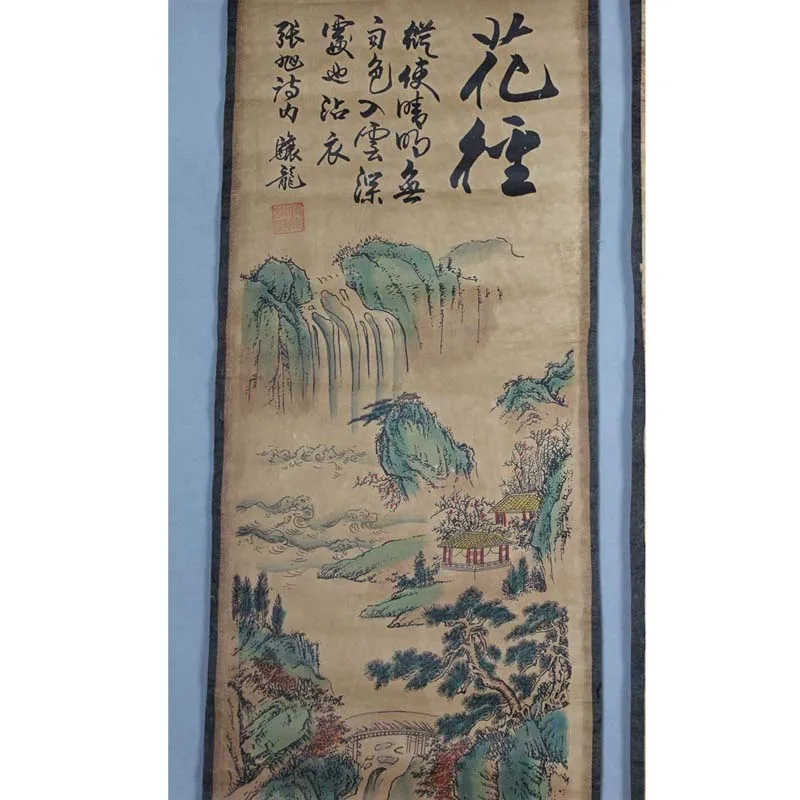 花徑
縱使晴明無
雨色入雲深
處也沾衣
張旭詩 驤龍